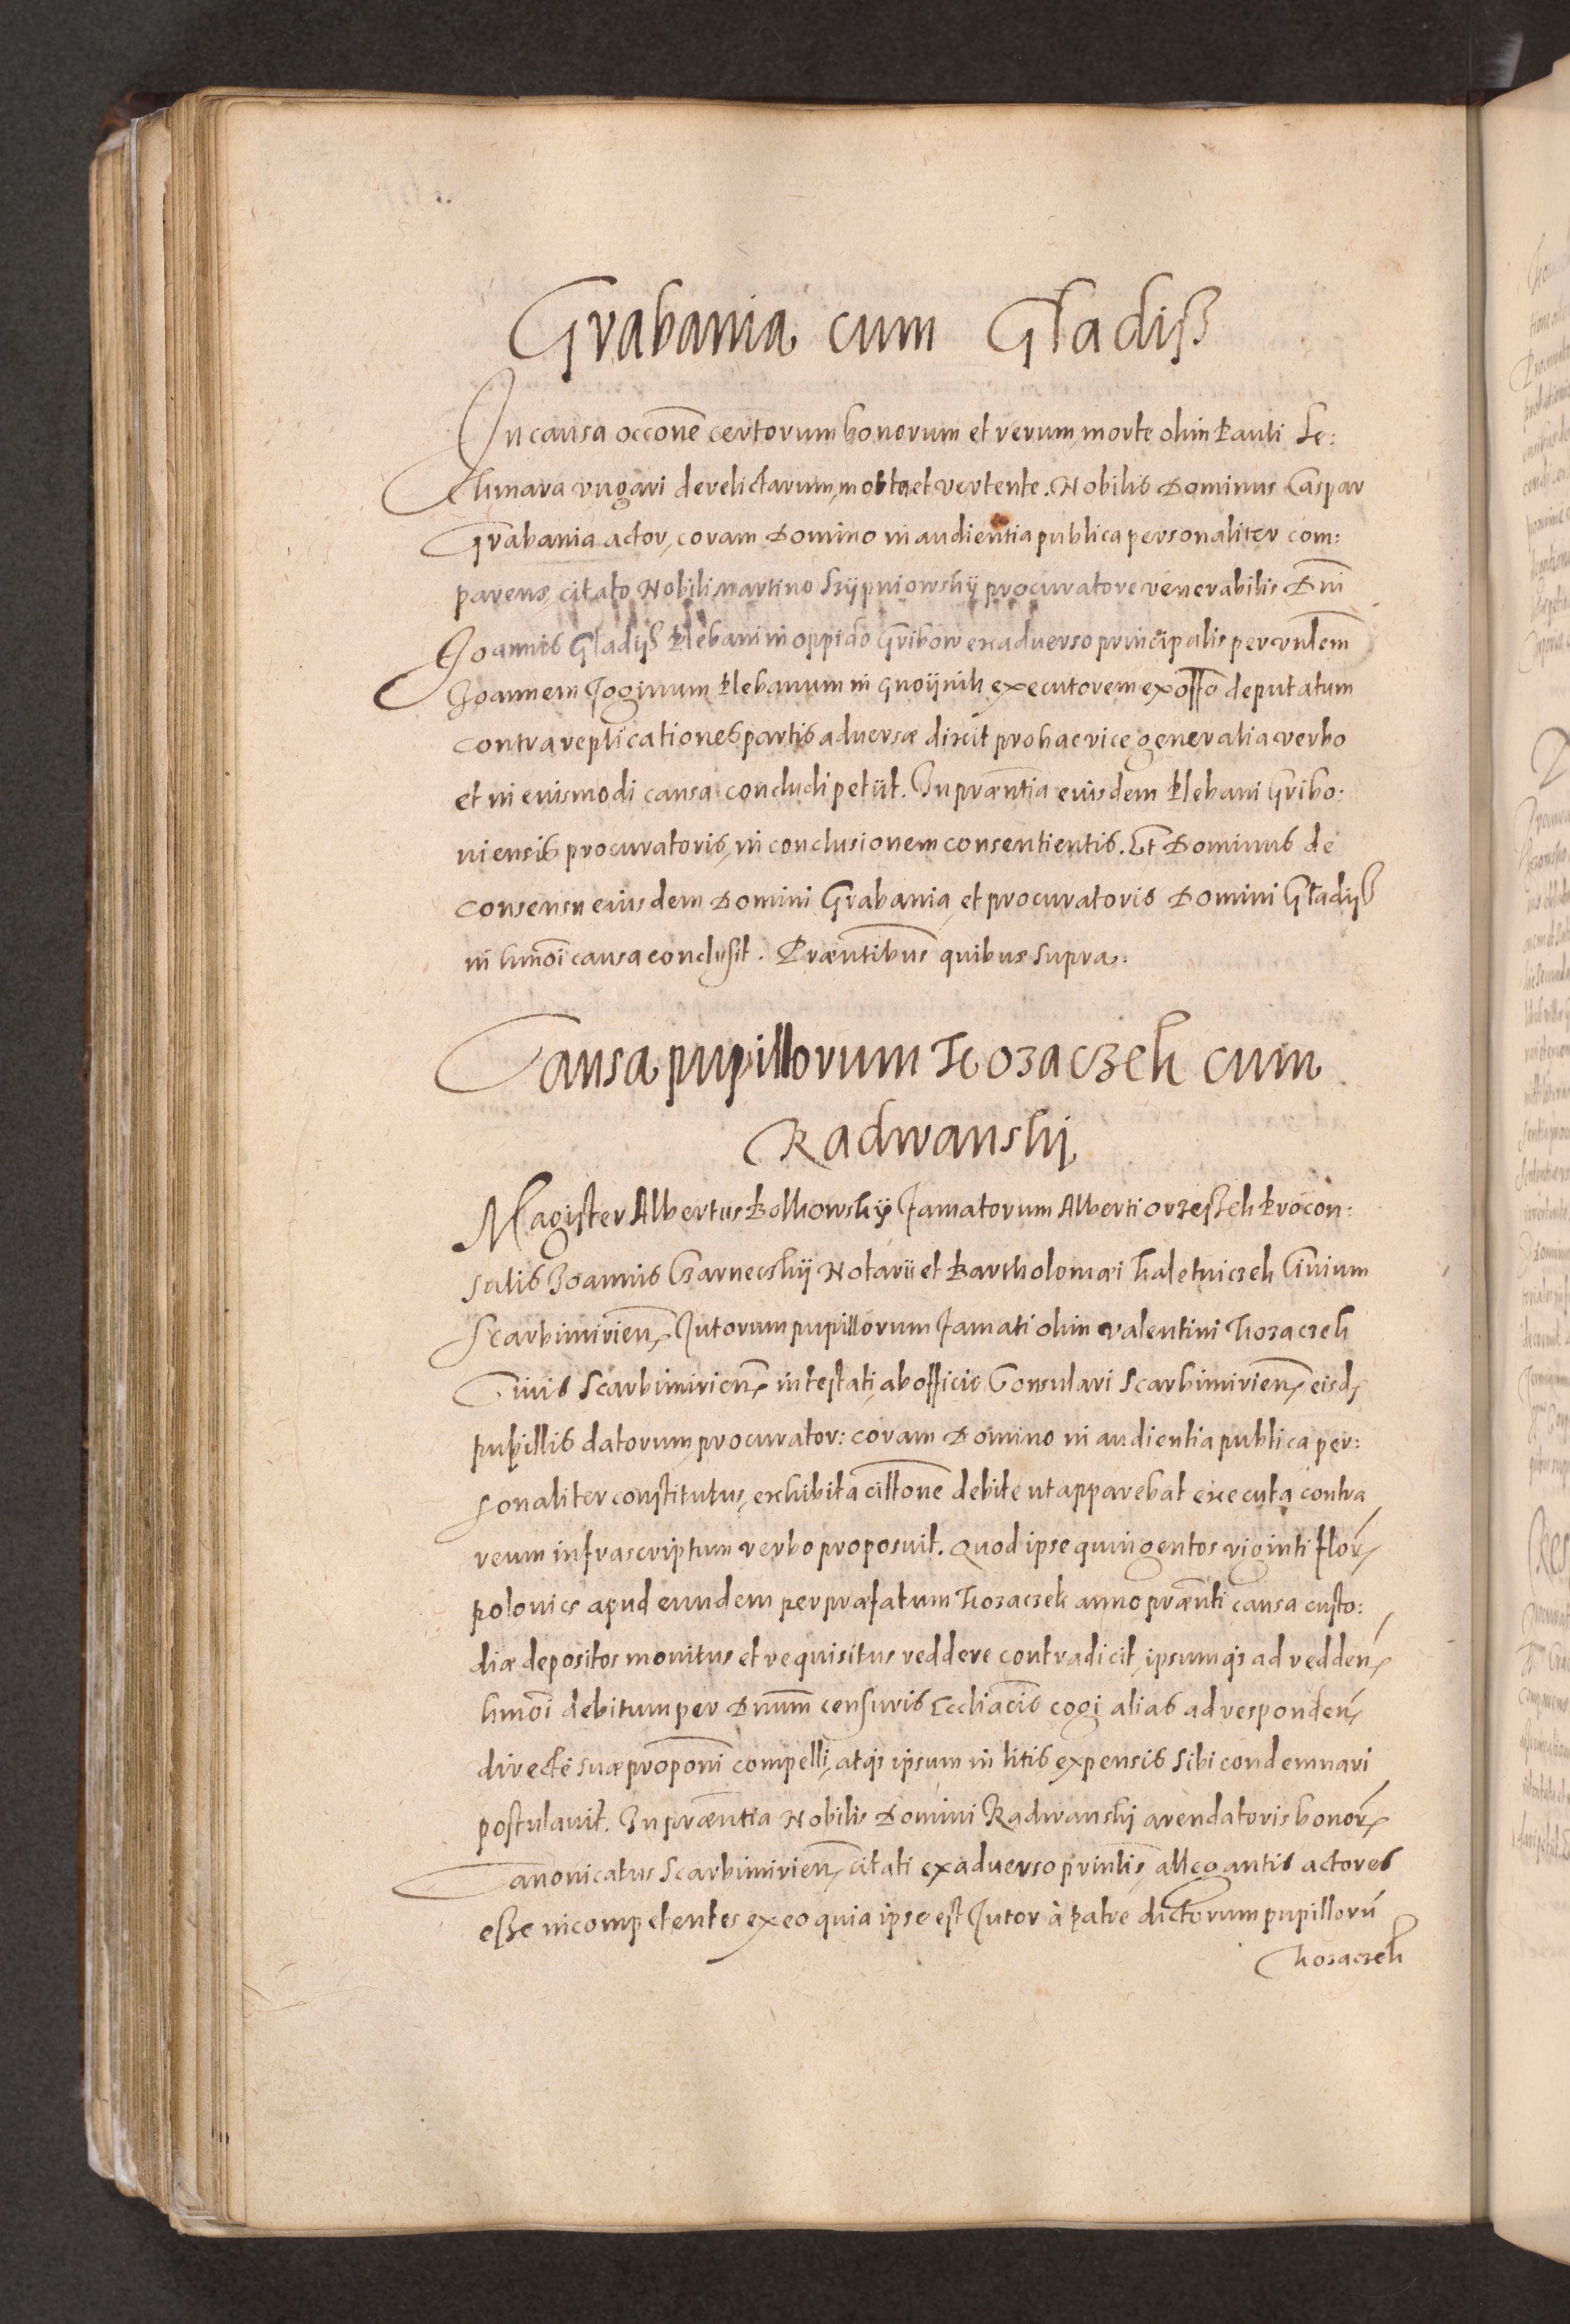 Grabania cum Gładiß
In causa occõne certorum bonorum et rerum, morte olim Pauli Se:
chmara vngari derelictarum, mota et vertente. Nobilis Dominus Caspar
Grabania actor, coram Domino in audientia publica personaliter com:
parens, citato Nobili Martino Sűpniowskÿ procuratore venerabilis Dñi
Joannis Gładiß Plebani in oppido Gribow ex aduerso principalis per
Joannem Joginum Plebanum in gnoÿnik executorem ex offo deputatum
contra replicationes partis aduersæ dixit pro hac vice generalia verbo
et in eiusmodi causa concludi petijt. In præntia eiusdem Plebani Gribo:
uiensis procuratoris, in conclusionem consentientis. Et Dominus de
consensu eiusdem Domini Grabania, et procuratoris Domini Gładÿß
in hmõi causa conclusit. Præntibus quibus supra.
Causa pupillorum Kozaczek cum
Radwanski
Magister Albertus Bolkowskÿ famatorum Alberti orzeßek Procon:
sulis Joannis Czarneczkÿ Notarij et Bartholomæi kaletniczek Ciuium
Scarbimirień, Tutorum pupillorum famati olim valentini kozaczek
Ciuis Scarbimirień, intestati, ab officio Consulari Scarbimirień, eisd,
pupillis datorum, procurator: coram Domino in audientia publica per:
sonaliter constitutus, exhibita cittõne debite ut apparebat executa contra
reum infrascriptum verbo proposuit. Quod ipse quingentos viginti flor,
polonics apud eundem per præfatum kozaczek anno prænti causa custo:
diæ depositos monitus et requisitus reddere contradicit, ipsumqz ad redden,
hmõi debitum per Dnum censuris Eccliacis cogi alias ad responden,
directe suæ propõni compelli, atqz ipsum in litis expensis sibi condemnari
postulauit. In præntia Nobilis Domini Radwanski arendatoris bonor,
Canonicatus Scarbimirień, citati ex aduerso prinlis, allegantis actores
eße incompetentes ex eo quia ipse est Tutor à patre dictorum pupillorũ
kozaczek